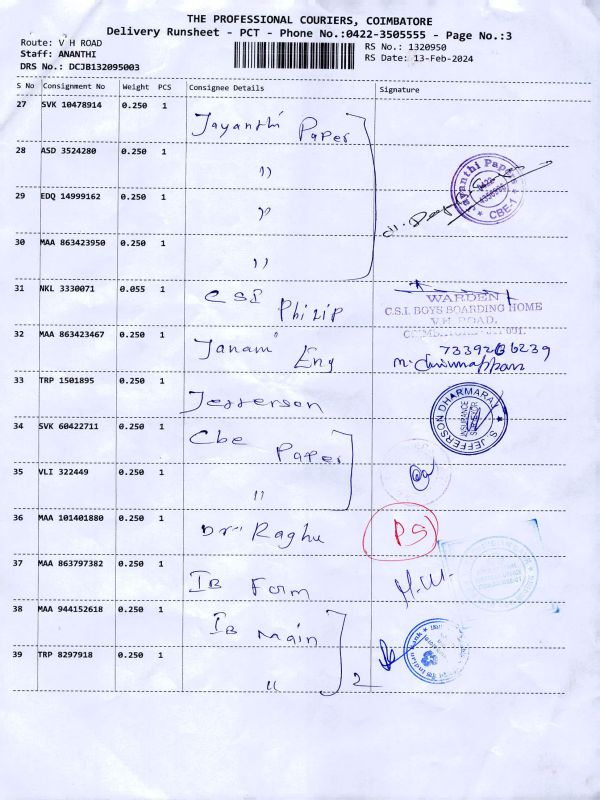 THE PROFESSIONAL COURIERS, COIMBATORE
Delivery Runsheet - PCT - Phone No.:0422-3505555 - Page No.:3
Route: V H ROAD
RS No.: 1320950
Staff: ANANTHI
RS Date: 13-Feb-2024
DRS No.: DCJB132095003
S No Consignment No Weight PCS Consignee Details Signature
27 SVK 10478914 0.250 1 Jayanthi Paper
28 ASD 3524280 0.250 1 "
29 EDQ 14999162 0.250 1 "
30 MAA 863423950 0.250 1 "
CBE-1
31 NKL 3330071 0.055 1 CSI Philip
WARDEN
C.S.I. BOYS BOARDING HOME
V.H. ROAD,
32 MAA 863423467 0.250 1 Janani Eng
7339266239
33 TRP 1501895 0.250 1 Jefferson
S. JEFFERSON DHARMARAJ
34 SVK 60422711 0.250 1 Cbe Paper
35 VLI 322449 0.250 1 "
36 MAA 101401880 0.250 1 Dr Raghu
37 MAA 863797382 0.250 1 IB Form
38 MAA 944152618 0.250 1 IB Main
Indian Bank
39 TRP 8297918 0.250 1 " 2